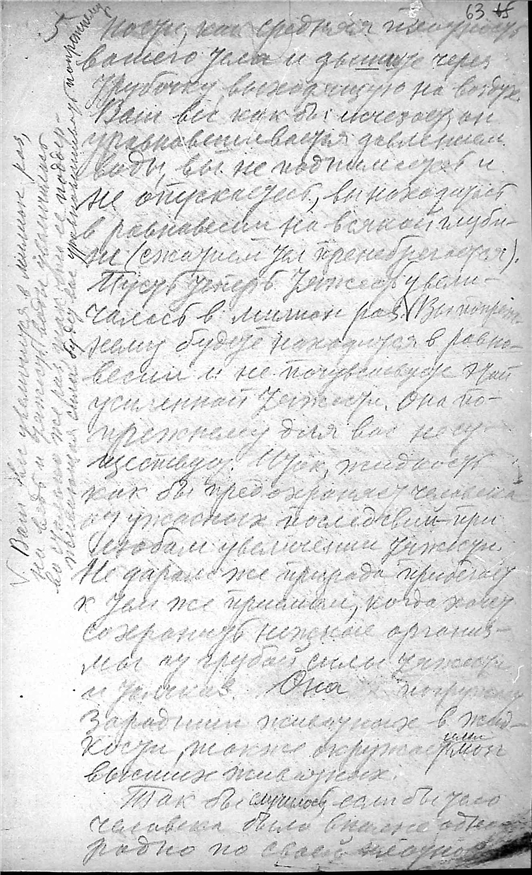 63
5
ности, как средняя плотность
вашего тела и дышите через
трубочку выходящую на воздух.
Ваш вес как бы исчезает, он
уравновешивается давлением
воды, вы не поднимаетесь и
не опускаетесь, вы находитесь
в равновесии на всякой глуби-
не (сжатием тел пренебрегается).
Пусть теперь тяжесть увели-
чилась в миллион раз. Вы по преж-
нему будете находиться в равно-
весии и не почувствуете этой
усиленной тяжести. Она по-
прежнему для вас не су-
ществует. Итак, жидкость
как бы предохраняет человека
от ужасных последствий при
любом увеличении тяжести.
Не даром же природа прибегает
к тем же приемам, когда хочет
сохранить нежные организ-
мы от грубой силы тяжести
и толчков. Она погружает
зародыши животных в жид-
кости, также окружает ими мозг
высших животных.
Так бы случилось, если бы тело
человека было вполне одно-
родно по своей плотности
Ваш вес увеличится в миллион раз,
но ведь и тяжесть воды увеличится
во столько же раз, поэтому и ее поддер-
живающая сила будет вас уравновешивать попрежнему